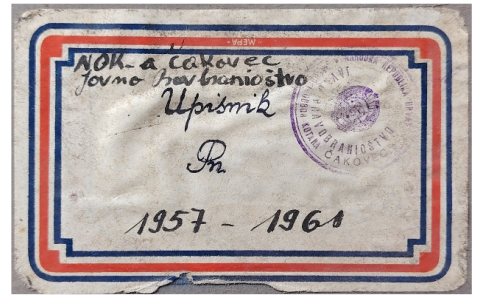 МЕРА
NOK-a Čakovec
Javno pravobranioštvo
Upisnik
Pn
1957 - 1961
NARODNA REPUBLIKA HRVATSKA
JAVNO
PRAVOBRANIOŠTVO
KOTARA
ČAKOVEC